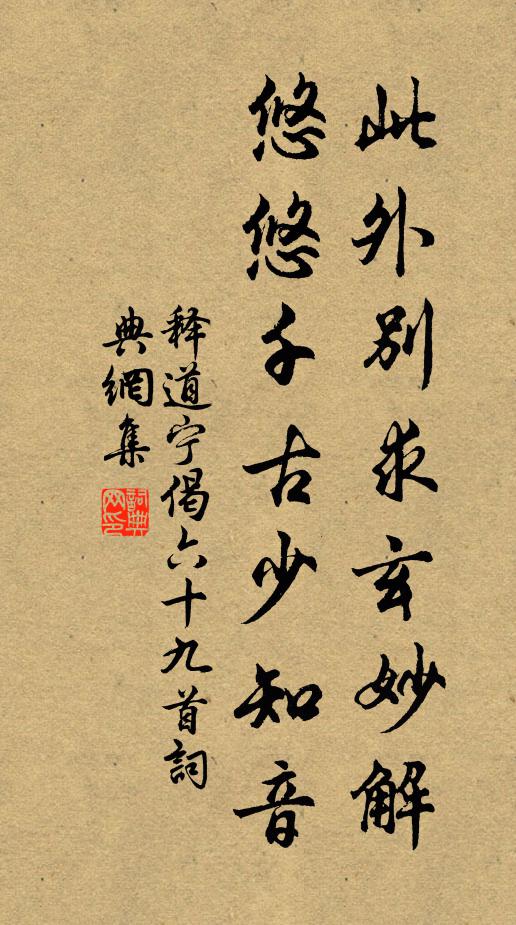 此外别求玄妙解
悠悠千古少知音
释道宁偈六十九首詞
典網集
詞典網印